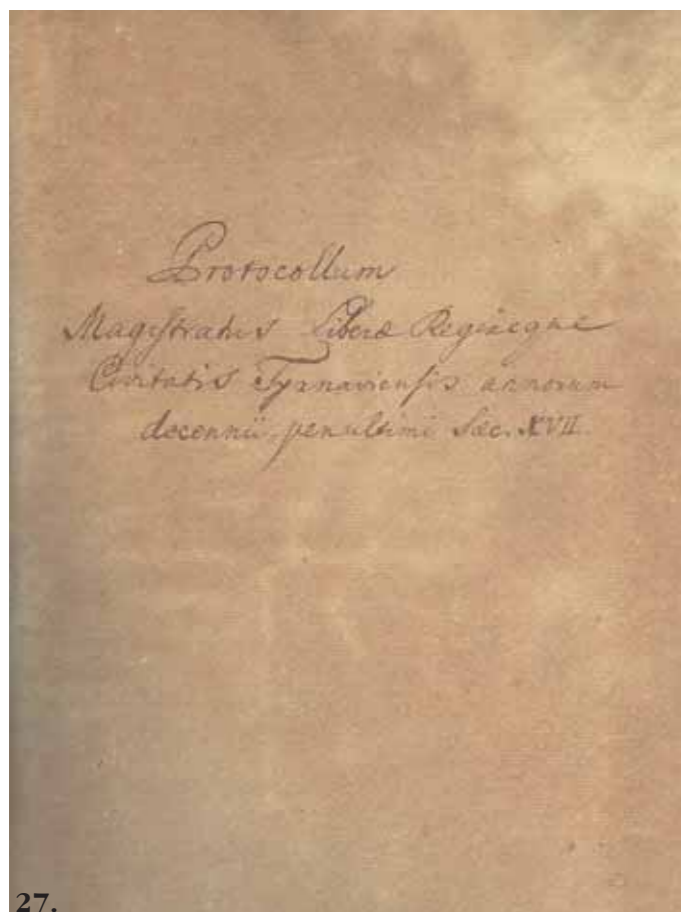 Protocollum
Magistratus Liberæ Regiæque
Civitatis Tyrnaviensis annorum
decennii penultimi Sæc. XVII.
27.